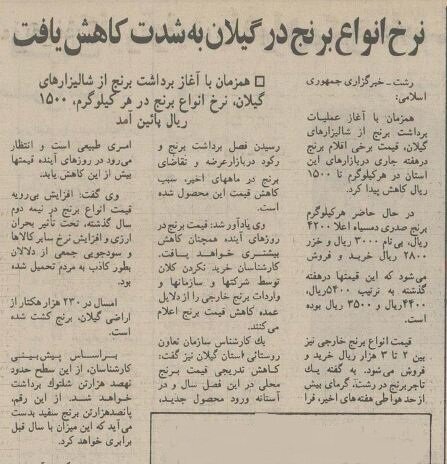 نرخ انواع برنج در گیلان به شدت کاهش یافت
□ همزمان با آغاز برداشت برنج از شالیزارهای
گیلان، نرخ انواع برنج در هر کیلوگرم، ۱۵۰۰
ریال پائین آمد
رشت ـ خبرگزاری جمهوری
اسلامی:
همزمان با آغاز عملیات
برداشت برنج از شالیزارهای
گیلان، قیمت برخی اقلام برنج
هفته جاری دربازارهای این
استان در هرکیلوگرم تا ۱۵۰۰
ریال کاهش پیدا کرد.
در حال حاضر هرکیلوگرم
برنج صدری دمسیاه اعلا ۴۲۰۰
ریال، بی‌نام ۳۰۰۰ ریال و خزر
۲۸۰۰ ریال خرید و فروش
می‌شود که این قیمتها درهفته
گذشته به ترتیب ۵۴۰۰ریال،
۴۴۰۰ریال و ۳۵۰۰ ریال بوده
است.
قیمت انواع برنج خارجی نیز
بین ۲ تا ۳ هزار ریال خرید و
فروش می‌شود. به گفته یک
تاجربرنج در رشت، گرمای بیش
ازحد هواطی هفته‌های اخیر، فرا
رسیدن فصل برداشت برنج و
رکود دربازارعرضه و تقاضای
برنج در ماههای اخیر، سبب
کاهش قیمت این محصول شده
است.
وی یادآور شد: قیمت برنج در
روزهای آینده همچنان کاهش
بیشتری خواهد یافت.
کارشناسان خرید نکردن کلان
توسط شرکتها و سازمانها و
واردات برنج خارجی را از دلایل
عمده کاهش قیمت برنج اعلام
می‌کنند.
یک کارشناس سازمان تعاون
روستائی استان گیلان نیز گفت:
کاهش تدریجی قیمت برنج
محلی در این فصل سال و در
آستانه ورود محصول جدید،
امری طبیعی است و انتظار
می‌رود در روزهای آینده قیمتها
بیش از این کاهش یابد.
وی گفت: افزایش بی‌رویه
قیمت انواع برنج در نیمه دوم
سال گذشته، تحت تأثیر بحران
ارزی و افزایش نرخ سایر کالاها
و سودجویی جمعی از دلالان
بطور کاذب به مردم تحمیل شده
بود.
امسال در ۲۳۰ هزار هکتار از
اراضی گیلان، برنج کشت شده
است.
براساس پیش‌بینی
کارشناسان، از این سطح حدود
نهصد هزارتن شلتوک برداشت
خواهد شد. از این رقم،
پانصدهزارتن برنج سفید بدست
می‌آید که این میزان با سال قبل
برابری خواهد کرد.